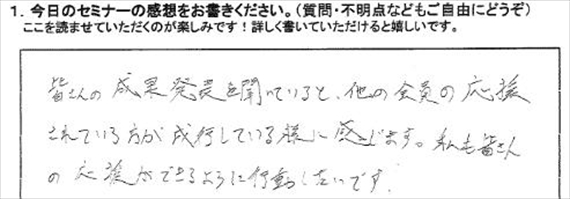 1. 今日のセミナーの感想をお書きください。（質問・不明点などもご自由にどうぞ）
ここを読ませていただくのが楽しみです！詳しく書いていただけると嬉しいです。
皆さんの成果発表を聞いていると、他の会員の応援
されている方が成行している様に感じます。私も皆さん
の応援ができるように行動したいです!